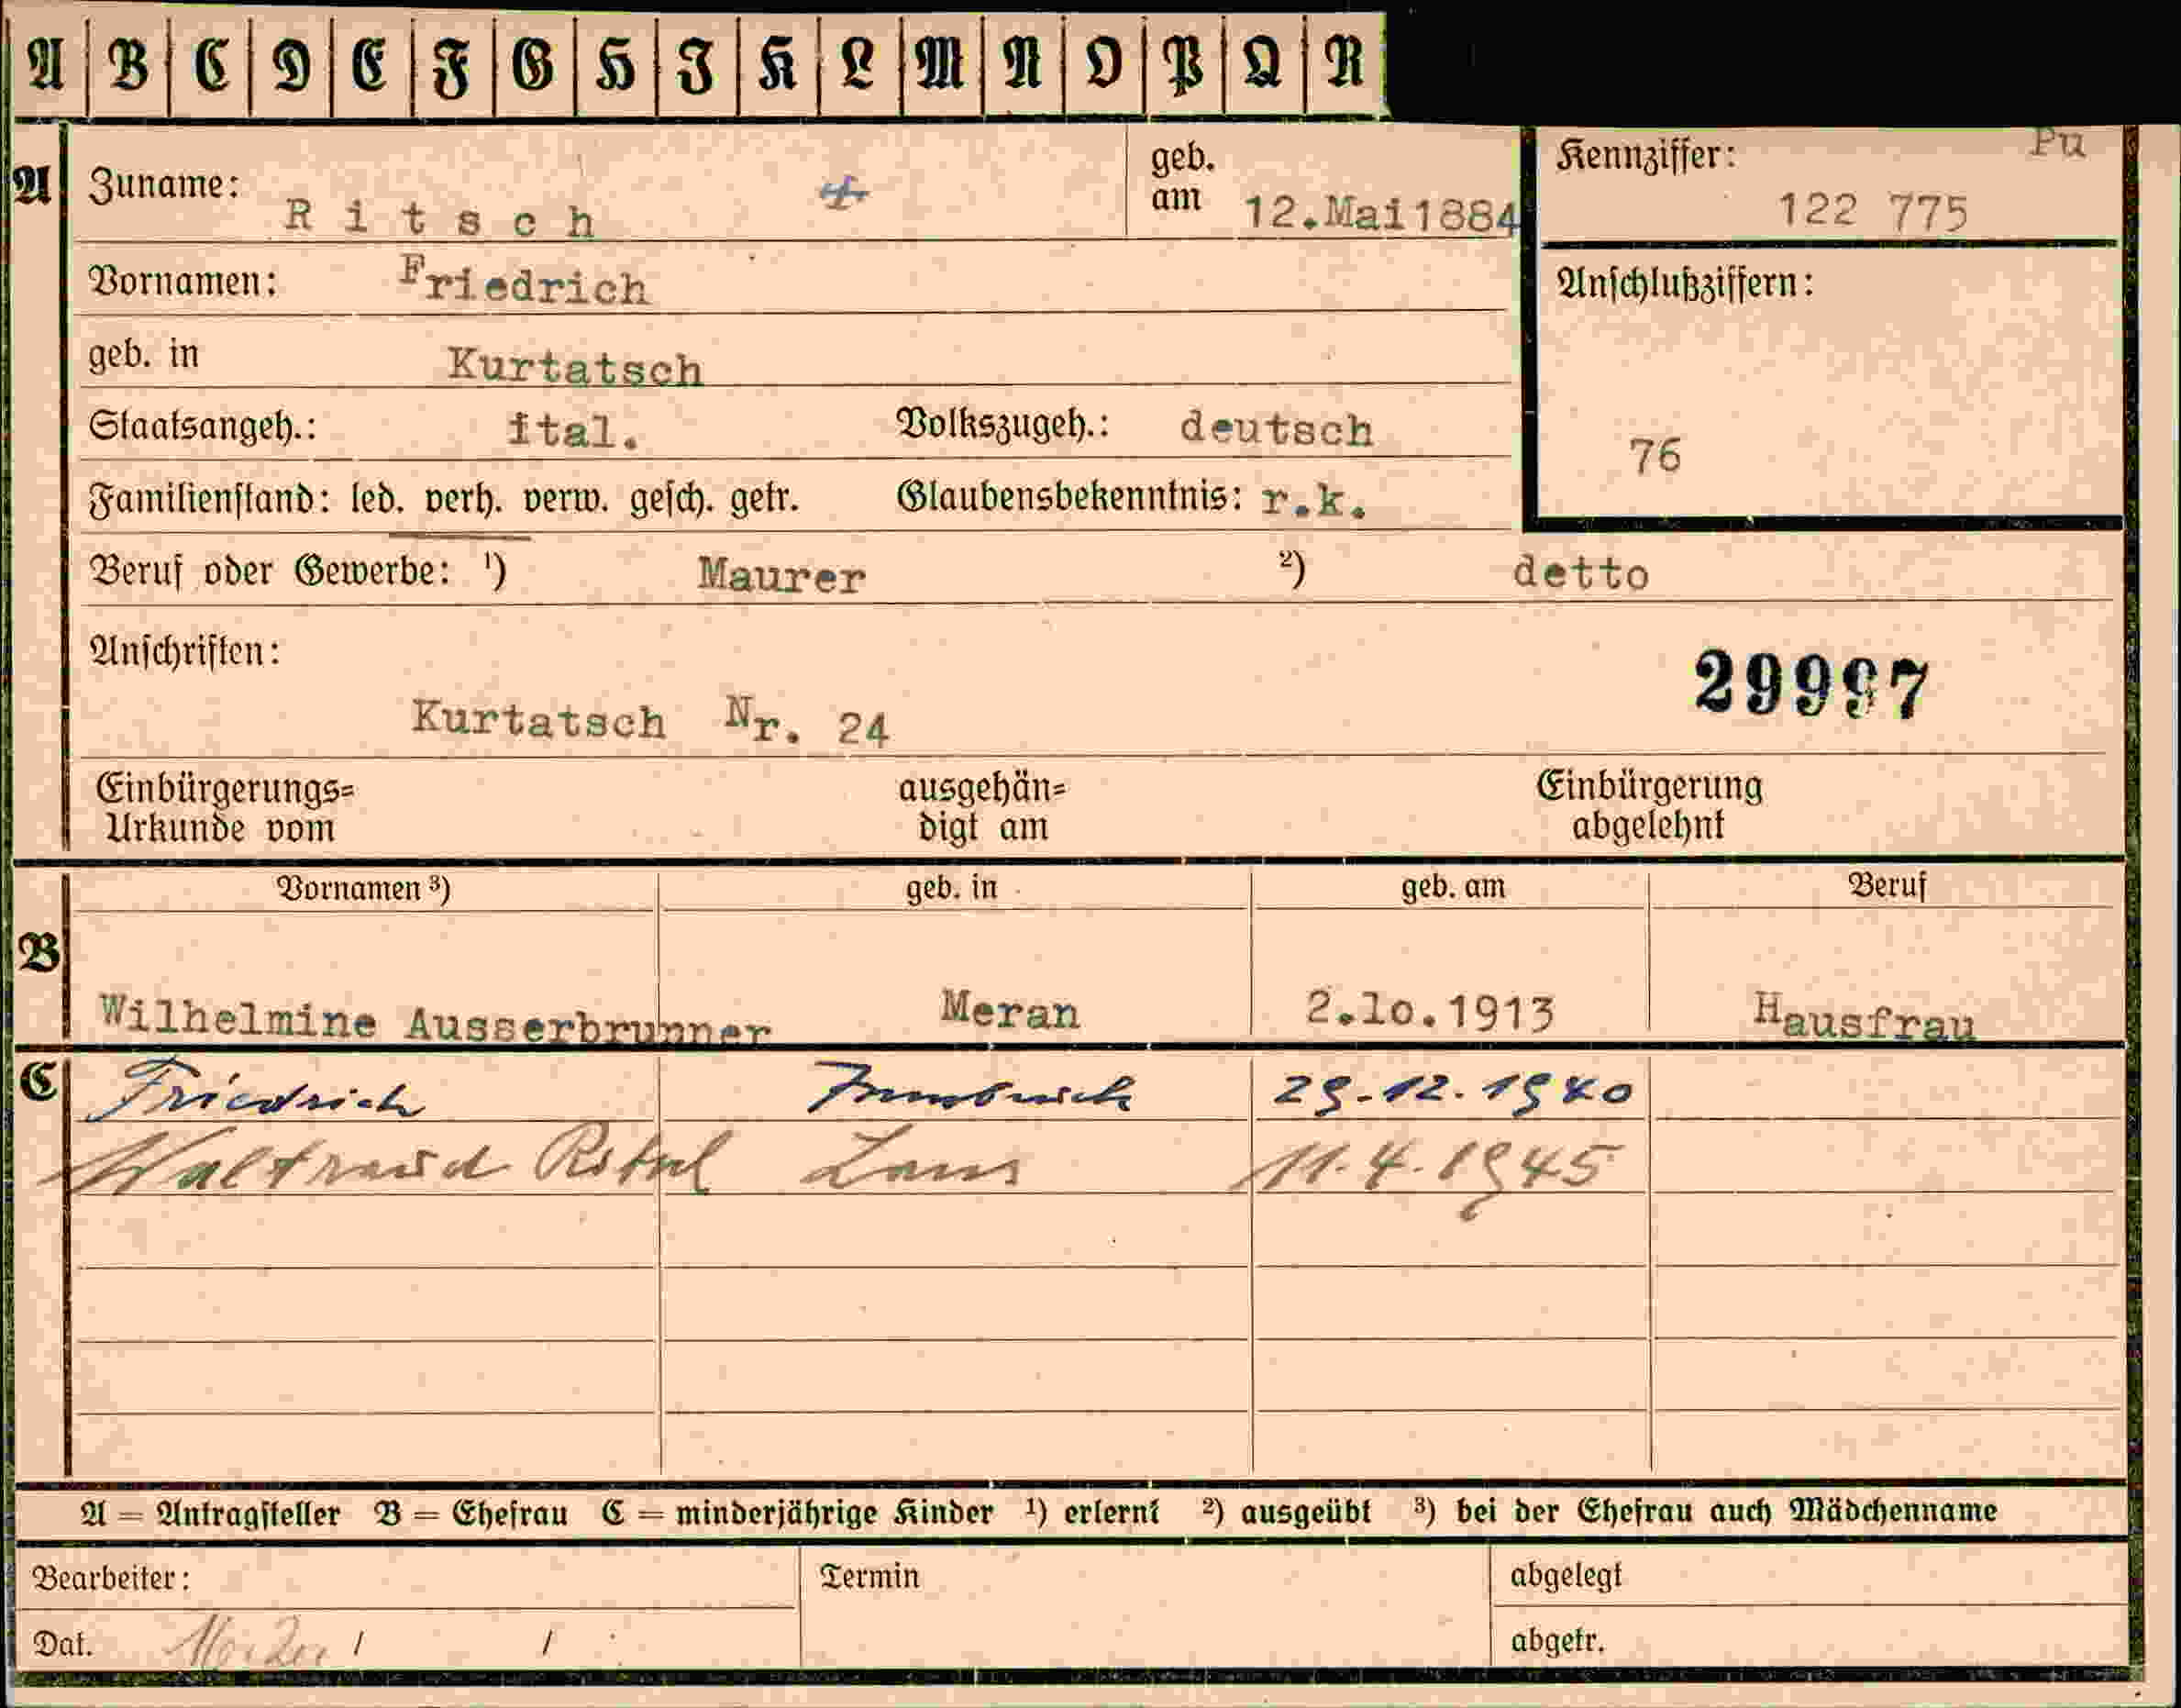 A B C D E F G H I K L M N O P Q R
A Zuname: Ritsch geb. am 12.Mai1884 Kennziffer: Pu 122 775
Vornamen: Friedrich Anschlußziffern:
geb. in Kurtatsch
Staatsangeh.: ital. Volkszugeh.: deutsch 76
Familienstand: led. verh. verw. gesch. getr. Glaubensbekenntnis: r.k.
Beruf oder Gewerbe: ¹) Maurer ²) detto
Anschriften: 29997
Kurtatsch Nr. 24
Einbürgerungs= ausgehän= Einbürgerung
Urkunde vom digt am abgelehnt
Vornamen ³) geb. in geb. am Beruf
B Wilhelmine Ausserbrunner Meran 2.10.1913 Hausfrau
C Friedrich Innsbruck 29.12.1940
Waltraud Lans 11.4.1945
A = Antragsteller B = Ehefrau C = minderjährige Kinder ¹) erlernt ²) ausgeübt ³) bei der Ehefrau auch Mädchenname
Bearbeiter: Termin abgelegt
Dat. / / abgetr.